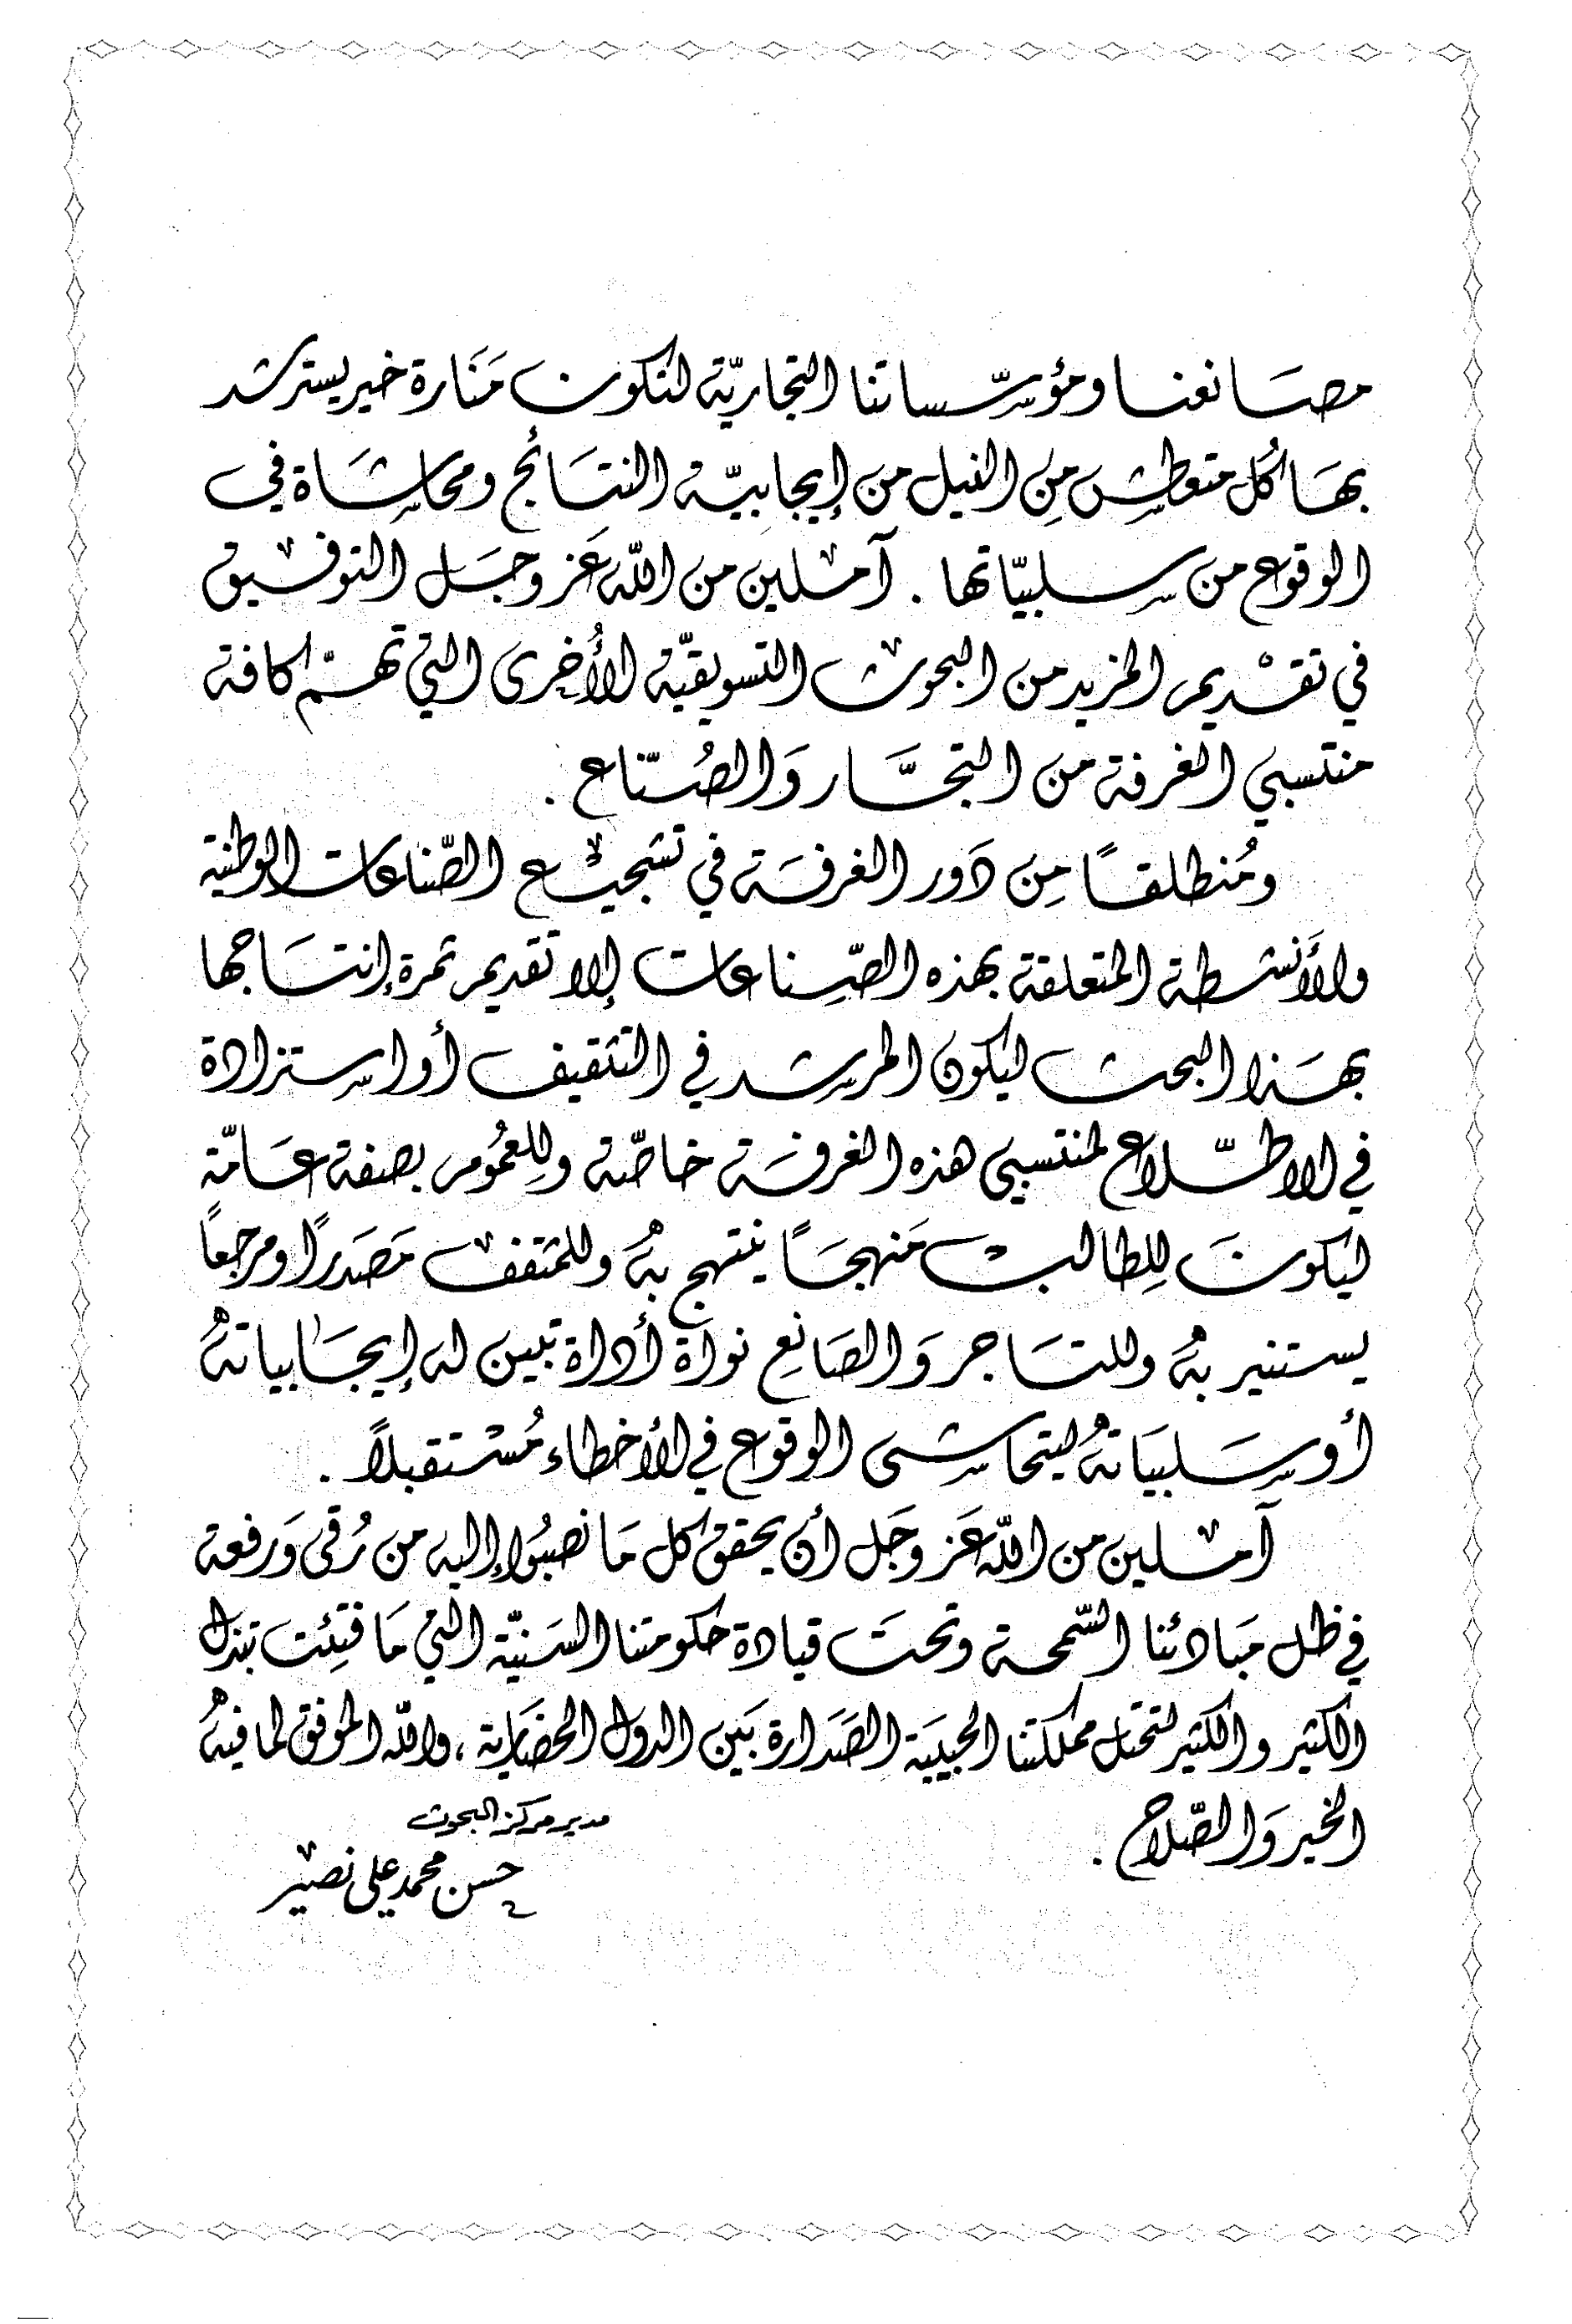 مصَانعنا ومؤسّساتنا التجاريّة لتكون مَنَارة خير يسترشد
بهَا كُل متعطش مِن النيل من إيجابيّة النتَائج ومحاشَاة في
الوقوع من سلبيّاتها . آملين من اللّه عَز وجَل التوفيق
في تقديم المزيد من البحوث التسويقيّة الأُخرى التي تهمّ كافة
منتسبي الغرفة من التجَّار وَالصُنّاع .
ومُنطلقاً مِن دَور الغرفَة في تشجيع الصّناعات الوطنية
والأَنشطة المتعلقة بهذه الصّناعات إلا تقديم ثمرة إنتَاجها
بهَذا البحث ليكون المرشد في التثقيف أو استزادة
في الاطّلاع لمنتسبي هذه الغرفَة خاصّة وللِعمُوم بصفة عَامّة
ليكونَ لِلطالب مَنهجَاً ينتهج بهُ وللمثقف مَصَدراً ومرجعاً
يستنير بهُ وللتَاجر وَالصَانع نواة أداة تبين له إيجَابياتهُ
أو سَلبيَاتهُ ليتحاشى الوقوع في الأخطاء مُستقبلاً .
آملين من اللّه عَز وجَل أن يحقق كل مَا نصبُوا إليه من رُقى وَرفعة
في ظل مَبادئنا السّمحة وتحتَ قيادة حكومتنا السَنيّة التي مَا فتِئت تبذل
الكثير والكثير لتحتل مملكتنا الحبيبَة الصَدارة بَين الدول الحضَارية ، واللّه الموفق لما فيهُ
الخير وَالصّلاح .
مدير مركز البحوث
حسن محمد علي نصير